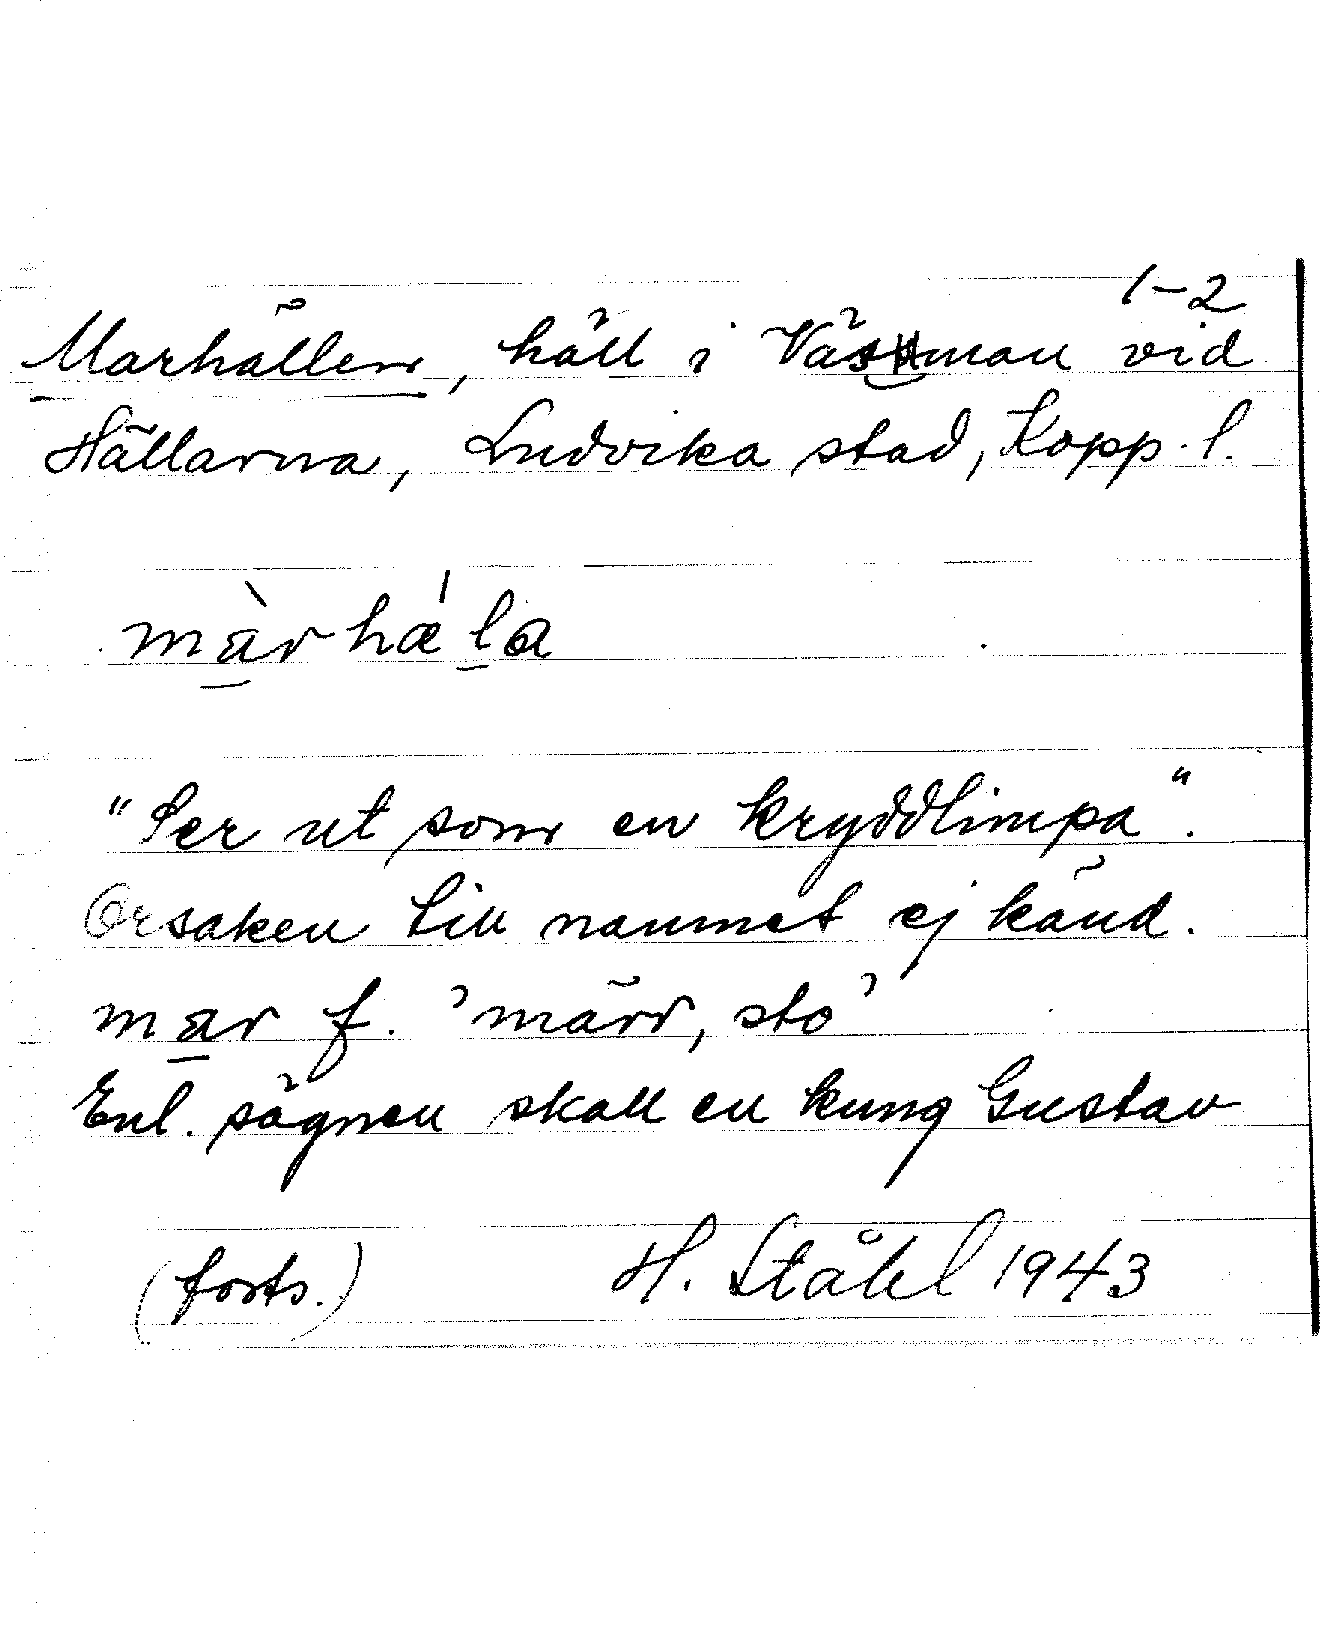 1-2
Marhällen, häll i Väsman vid
Hällarna, Ludvika stad, Kopp. l.
màrhǽla
"Ser ut som en kryddlimpa".
Orsaken till namnet ej känd.
mar f. 'märr, sto'
Enl. sägnen skall en kung Gustav
(forts.) H. Ståhl 1943